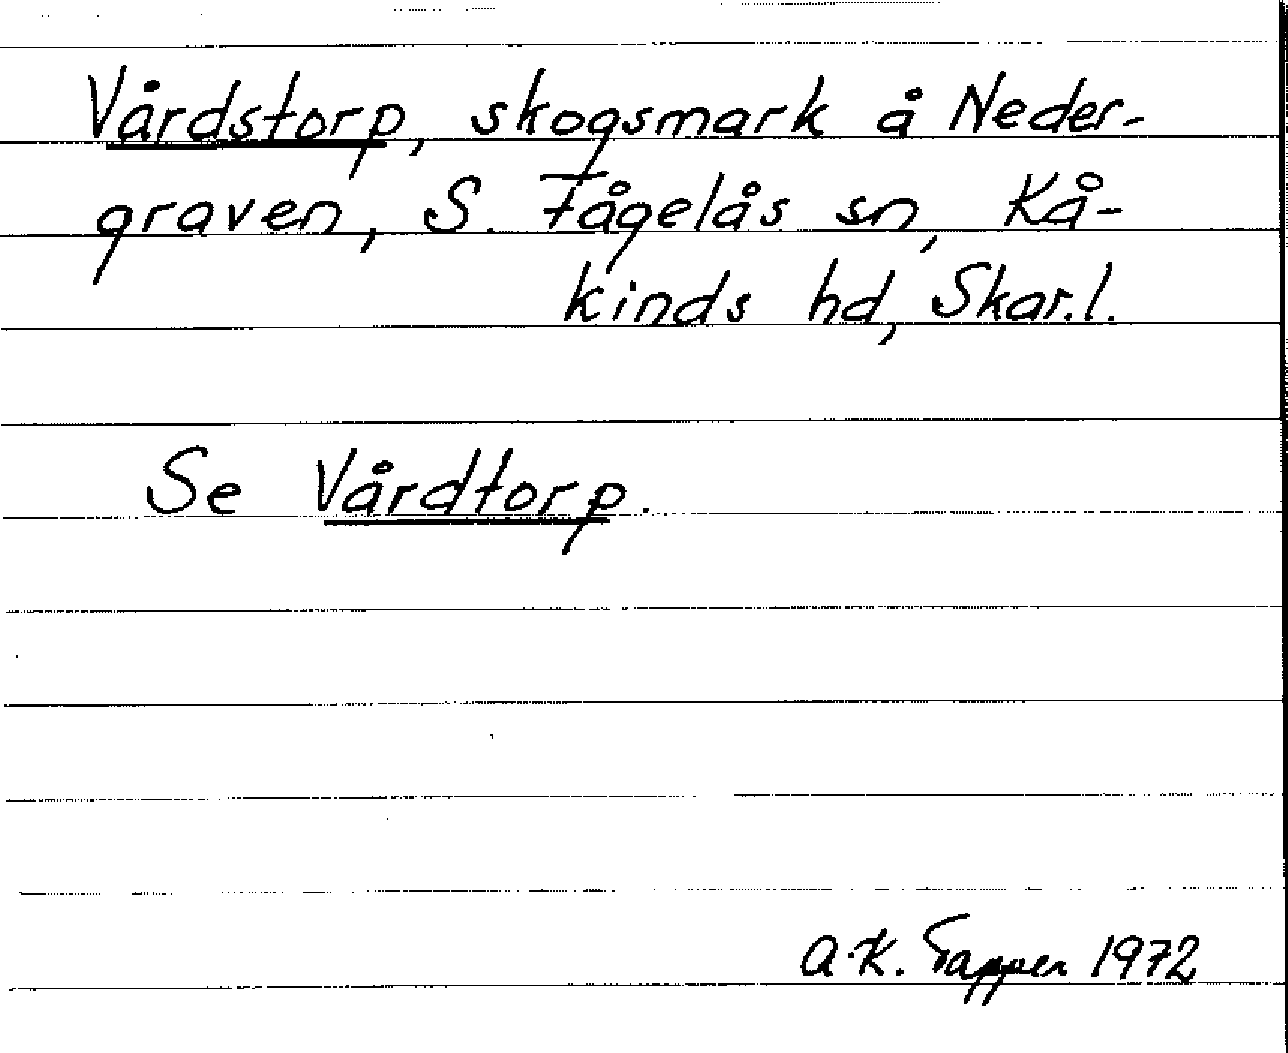 Vårdstorp, skogsmark å Neder-
graven, S. Fågelås sn, Kå-
kinds hd, Skar.l.
Se Vårdtorp.
A-K. Tapper 1972